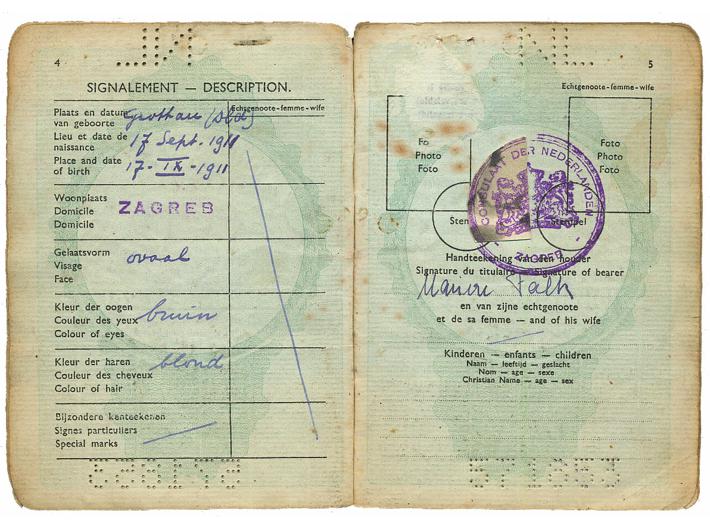 4
SIGNALEMENT — DESCRIPTION.
Echtgenoote-femme-wife
Plaats en datum
van geboorte
Lieu et date de
naissance 17 Sept. 1911
Place and date
of birth 17-IX-1911
Woonplaats
Domicile ZAGREB
Domicile
Gelaatsvorm
Visage ovaal
Face
Kleur der oogen
Couleur des yeux bruin
Colour of eyes
Kleur der haren blond
Couleur des cheveux
Colour of hair
Bijzondere kenteekenen
Signes particuliers
Special marks
5
Echtgenoote-femme-wife
Photo
Foto
Foto
Photo
Foto
CONSULAAT DER NEDERLANDEN
ZAGREB
Handteekening van den houder
Signature du titulaire — Signature of bearer
Falk
en van zijne echtgenoote
et de sa femme — and of his wife
Kinderen — enfants — children
Naam — leeftijd — geslacht
Nom — age — sexe
Christian Name — age — sex